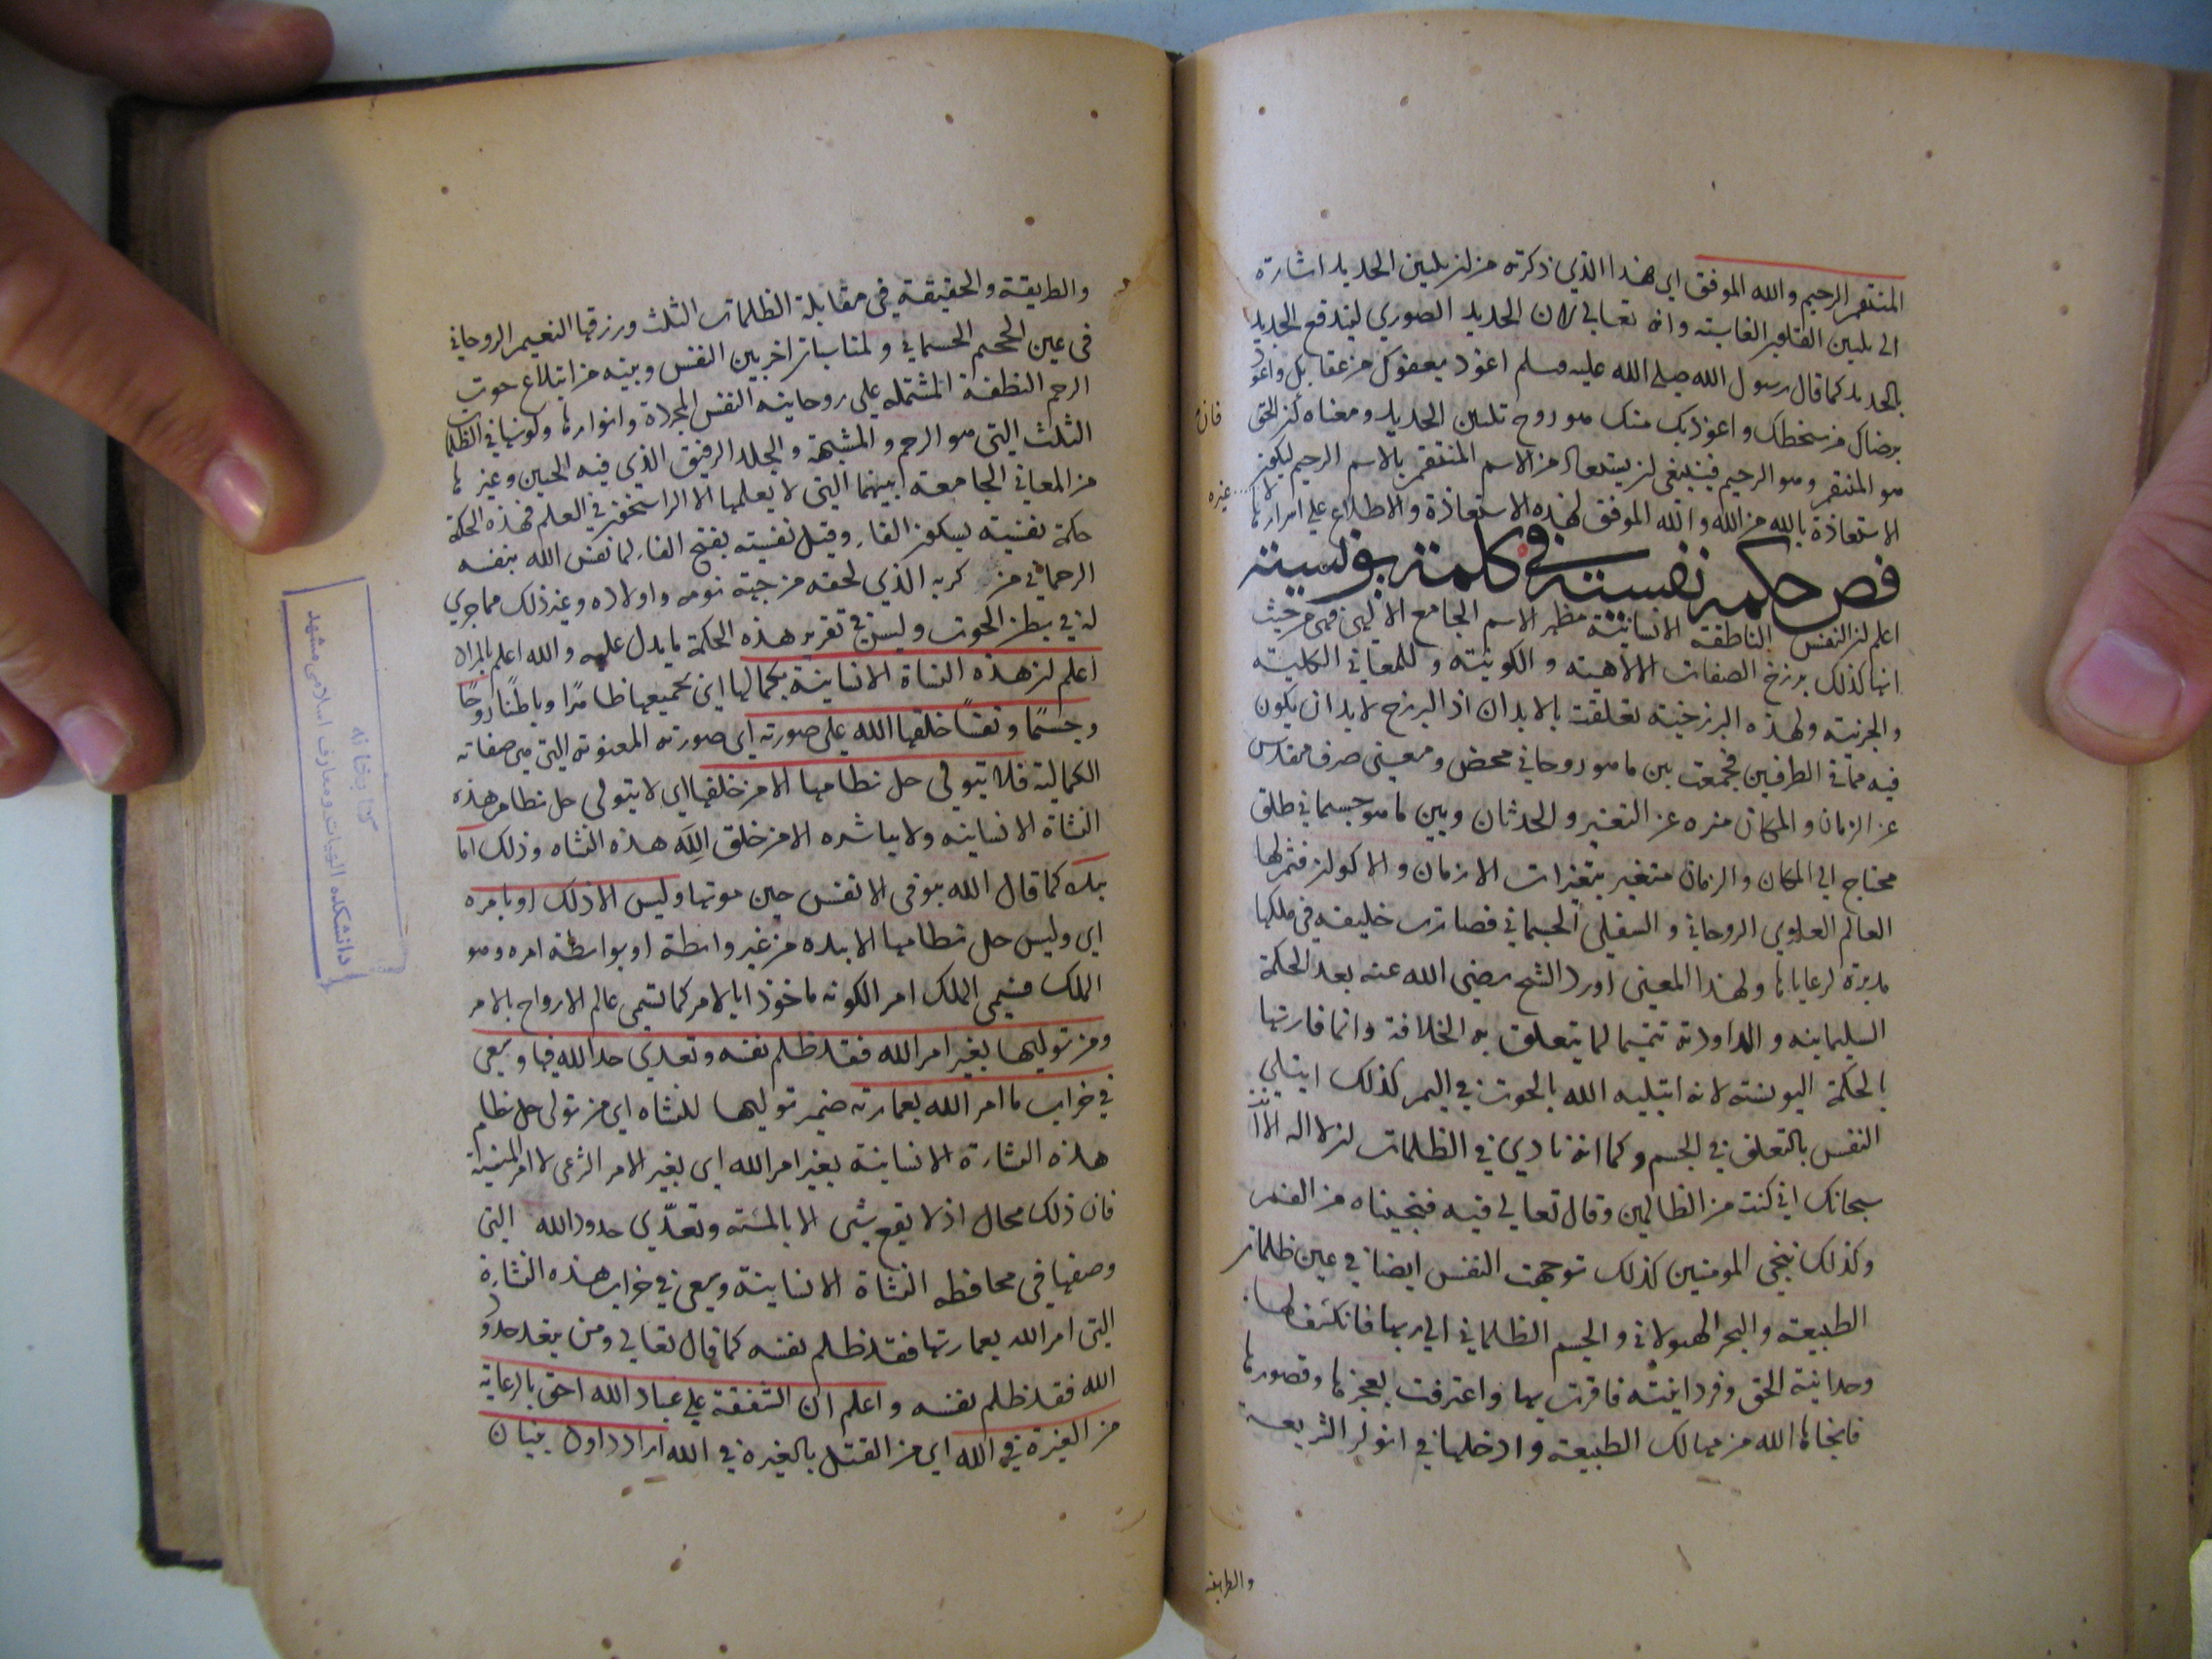 المنتقم الرحيم والله الموفق اى هذا الذي ذكرته من ان بليين الحديد اشارة
الى بليين القلوب القاسية وانه تعالى الان الحديد الصوري ليندفع الحديد
بالحديد كما قال رسول الله صلى الله عليه وسلم اعوذ بعفوك من عقابك واعوذ
برضاك من سخطك واعوذ بك منك هو روح تليين الحديد ومعناه لان الحق
هو المنتقم وهو الرحيم فينبغى ان يستعاذ من الاسم المنتقم بالاسم الرحيم ليكون
الاستعاذة بالله من الله والله الموفق لهذه الاستعاذة والاطلاع على اسرارها
فص حكمة نفسية في كلمة يونسية
اعلم ان النفس الناطقة الانسانية مظهر الاسم الجامع الالهى فمن حيث
انها كذلك برزخ الصفات الالاهية والكونية وللمعانى الكلية
والجزئية ولهذه البرزخية تعلقت بالابدان اذ البرزخ لابد ان يكون
فيه ما فى الطرفين فجمعت بين ما هو روحانى محض ومعنى صرف مقدس
عن الزمان والمكان منزه عن التغير والحدثان وبين ما هو جسمانى طلق
محتاج الى المكان والزمان متغير بتغيرات الازمان والاكوان فتم لها
العالم العلوى الروحانى والسفلى الجسمانى فصارت خليفة فى ملكها
مدبرة لرعاياها ولهذا المعنى اورد الشيخ رضى الله عنه بعد الحكمة
السليمانيه والداودية تتميما لما يتعلق به الخلافة وانما قارنها
بالحكمة اليونسية لانه ابتليه الله بالحوت في اليم كذلك ابتلي
النفس بالتعلق في الجسم وكما انه نادى في الظلمات ان لا اله الا انت
سبحانك انى كنت من الظالمين وقال تعالى فيه فنجيناه من الغم
وكذلك ننجى المومنين كذلك توجهت النفس ايضا في عين ظلمات
الطبيعة والبحر الهيولانى والجسم الظلمانى الى ربها فانكشف لها
وحدانية الحق وفردانيته فاقرت بها واعترفت بعجزها وقصورها
فانجاها الله من مهالك الطبيعة وادخلها في انوار الشريعة
والطريقة
والطريقة والحقيقة في مقابلة الظلمات الثلث ورزقها النعيم الروحانى
فى عين الجحيم الجسمانى ولمناسبات اخر بين النفس وبينه من ابتلاع حوت
الرحم النطفة المشتملة على روحانية النفس المجردة وانوارها وكونها في الظلمات
الثلث التى هو الرحم والمشيمة والجلد الرقيق الذي فيه الجنين وغيرها
من المعانى الجامعة بينهما التى لا يعلمها الا الراسخون في العلم فهذه الحكمة
حكمة نفسية بسكون الفاء وقيل نفسية بفتح الفاء لما نفس الله بنفسه
الرحمانى من كربه الذي لحقه من جهة قومه واولاده وغير ذلك مما جرى
له في بطن الحوت وليس في تقرير هذه الحكمة ما يدل عليه والله اعلم بالمراد
اعلم ان هذه النشاة الانسانية بكمالها اى بجميعها ظاهرا وباطنا روحا
وجسما ونفسا خلقها الله على صورته اى صورته المعنوية التى هى صفاته
الكمالية فلا يتولى حل نظامها الا من خلقها اى لا يتولى حل نظام هذه
النشاة الانسانية ولا يباشره الا من خلق الله هذه النشاه وذلك اما
بيده كما قال الله يتوفى الانفس حين موتها وليس الا ذلك او بامره
اى وليس حل نظامها الا بيده من غير واسطة او بواسطة امره وهو
الملك فسمى الملك امر الكونه ماخوذا بالامر كما تسمى عالم الارواح بالامر
ومن توليها بغير امر الله فقد ظلم نفسه وتعدى حد الله فيها وسعى
في خراب ما امر الله بعمارته ضمير توليها للنشاه اى من تولى حل نظام
هذه النشارة الانسانية بغير امر الله اى بغير الامر الشرعى لا امر المشية
فان ذلك محال اذ لا يقع شى الا بالمشية وتعدى حدود الله التى
وضعها فى محافظه النشاة الانسانية وسعى في خراب هذه النشارة
التى امر الله بعمارتها فقد ظلم نفسه كما قال تعالى ومن يتعد حدود
الله فقد ظلم نفسه واعلم ان الشفقة على عباد الله احق بالرعاية
من الغيرة في الله اى من القتل بالغيرة في الله اراد داود بنيان
كتابخانه
دانشكده الهيات و معارف اسلامى مشهد